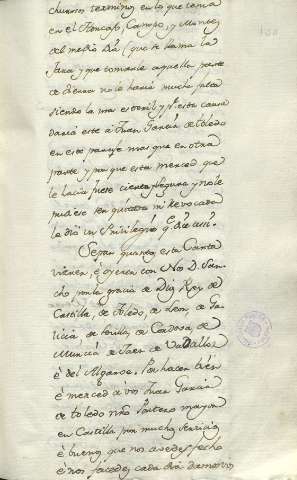 chismos terminos, en lo que cauia
en el Azincafo, Campo, y Montes
del medio Dia (que se llama la
Jara y que tomarle aquella parte
de tierra no le haria mucha falta
siendo la mas esteril; y por esta causa
daria este a Juan Garcia de toledo
en este parage mas que en otra
parte y por que esta merced que
le hacia fuese cierta y segura y no le
pudiese ser quitada ni Revocada
le dió un Privilegio que dice assi
Sepan quantos esta Carta
vieren, é oyeren como Nos D. San-
cho por la gracia de Dios Rey de
Castilla, de Toledo de Leon, de Ga-
licia, de Sevilla, de Cordova, de
Murcia de Jaen de
é del Algarve. Por hacer bien
é merced a vos Juan Garcia
de toledo nro Portero mayor
en Castilla por mucho servicio
é bueno que nos avedes fecho
é nos facedes cada dia damosvos